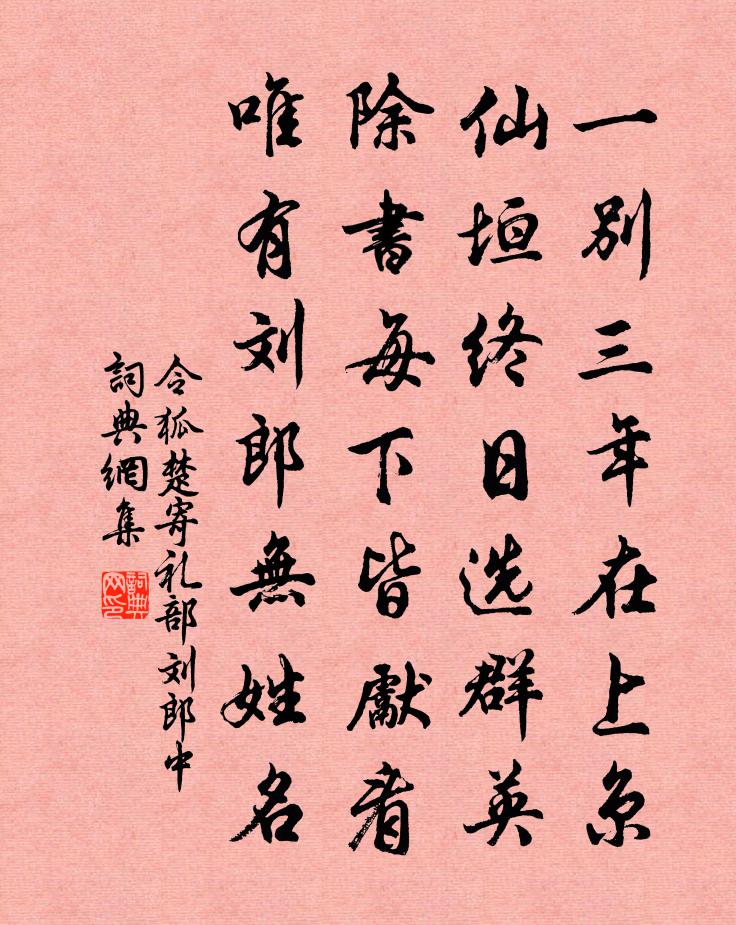 一别三年在上京
仙垣终日选群英
除書每下皆獻看
唯有刘郎無姓名
令狐楚寄礼部刘郎中
詞典網集
詞典网印